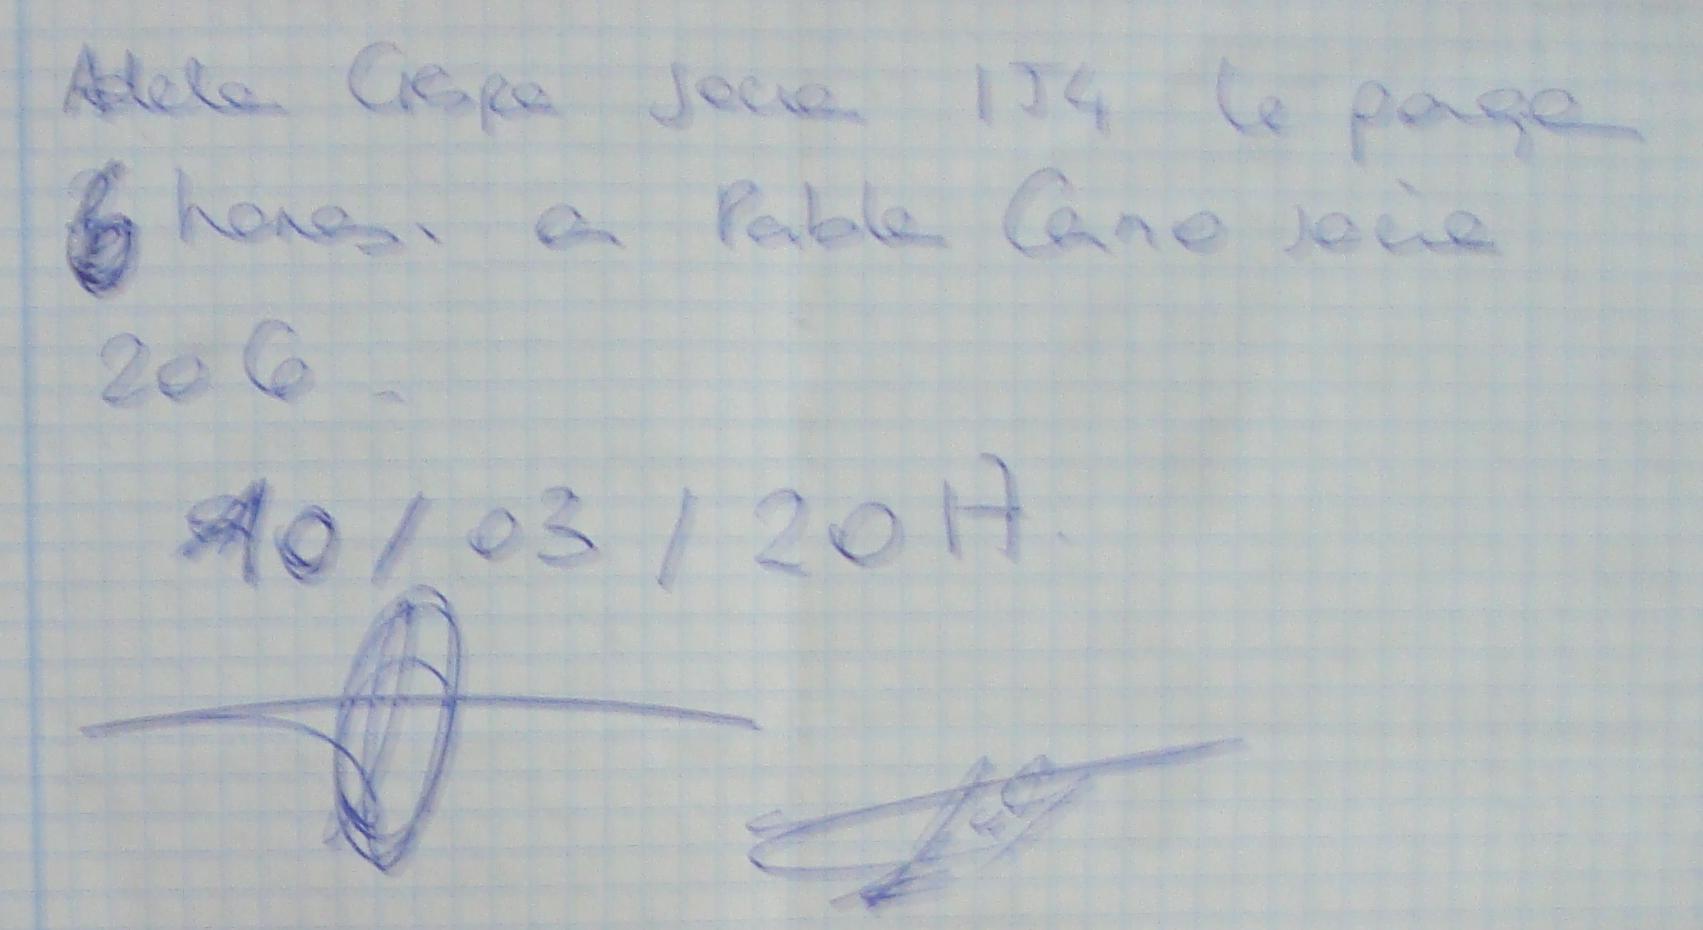 Adela Crespo socia 154 le paga
horas. a Pabla Cano socia
206.
10/03/2014.